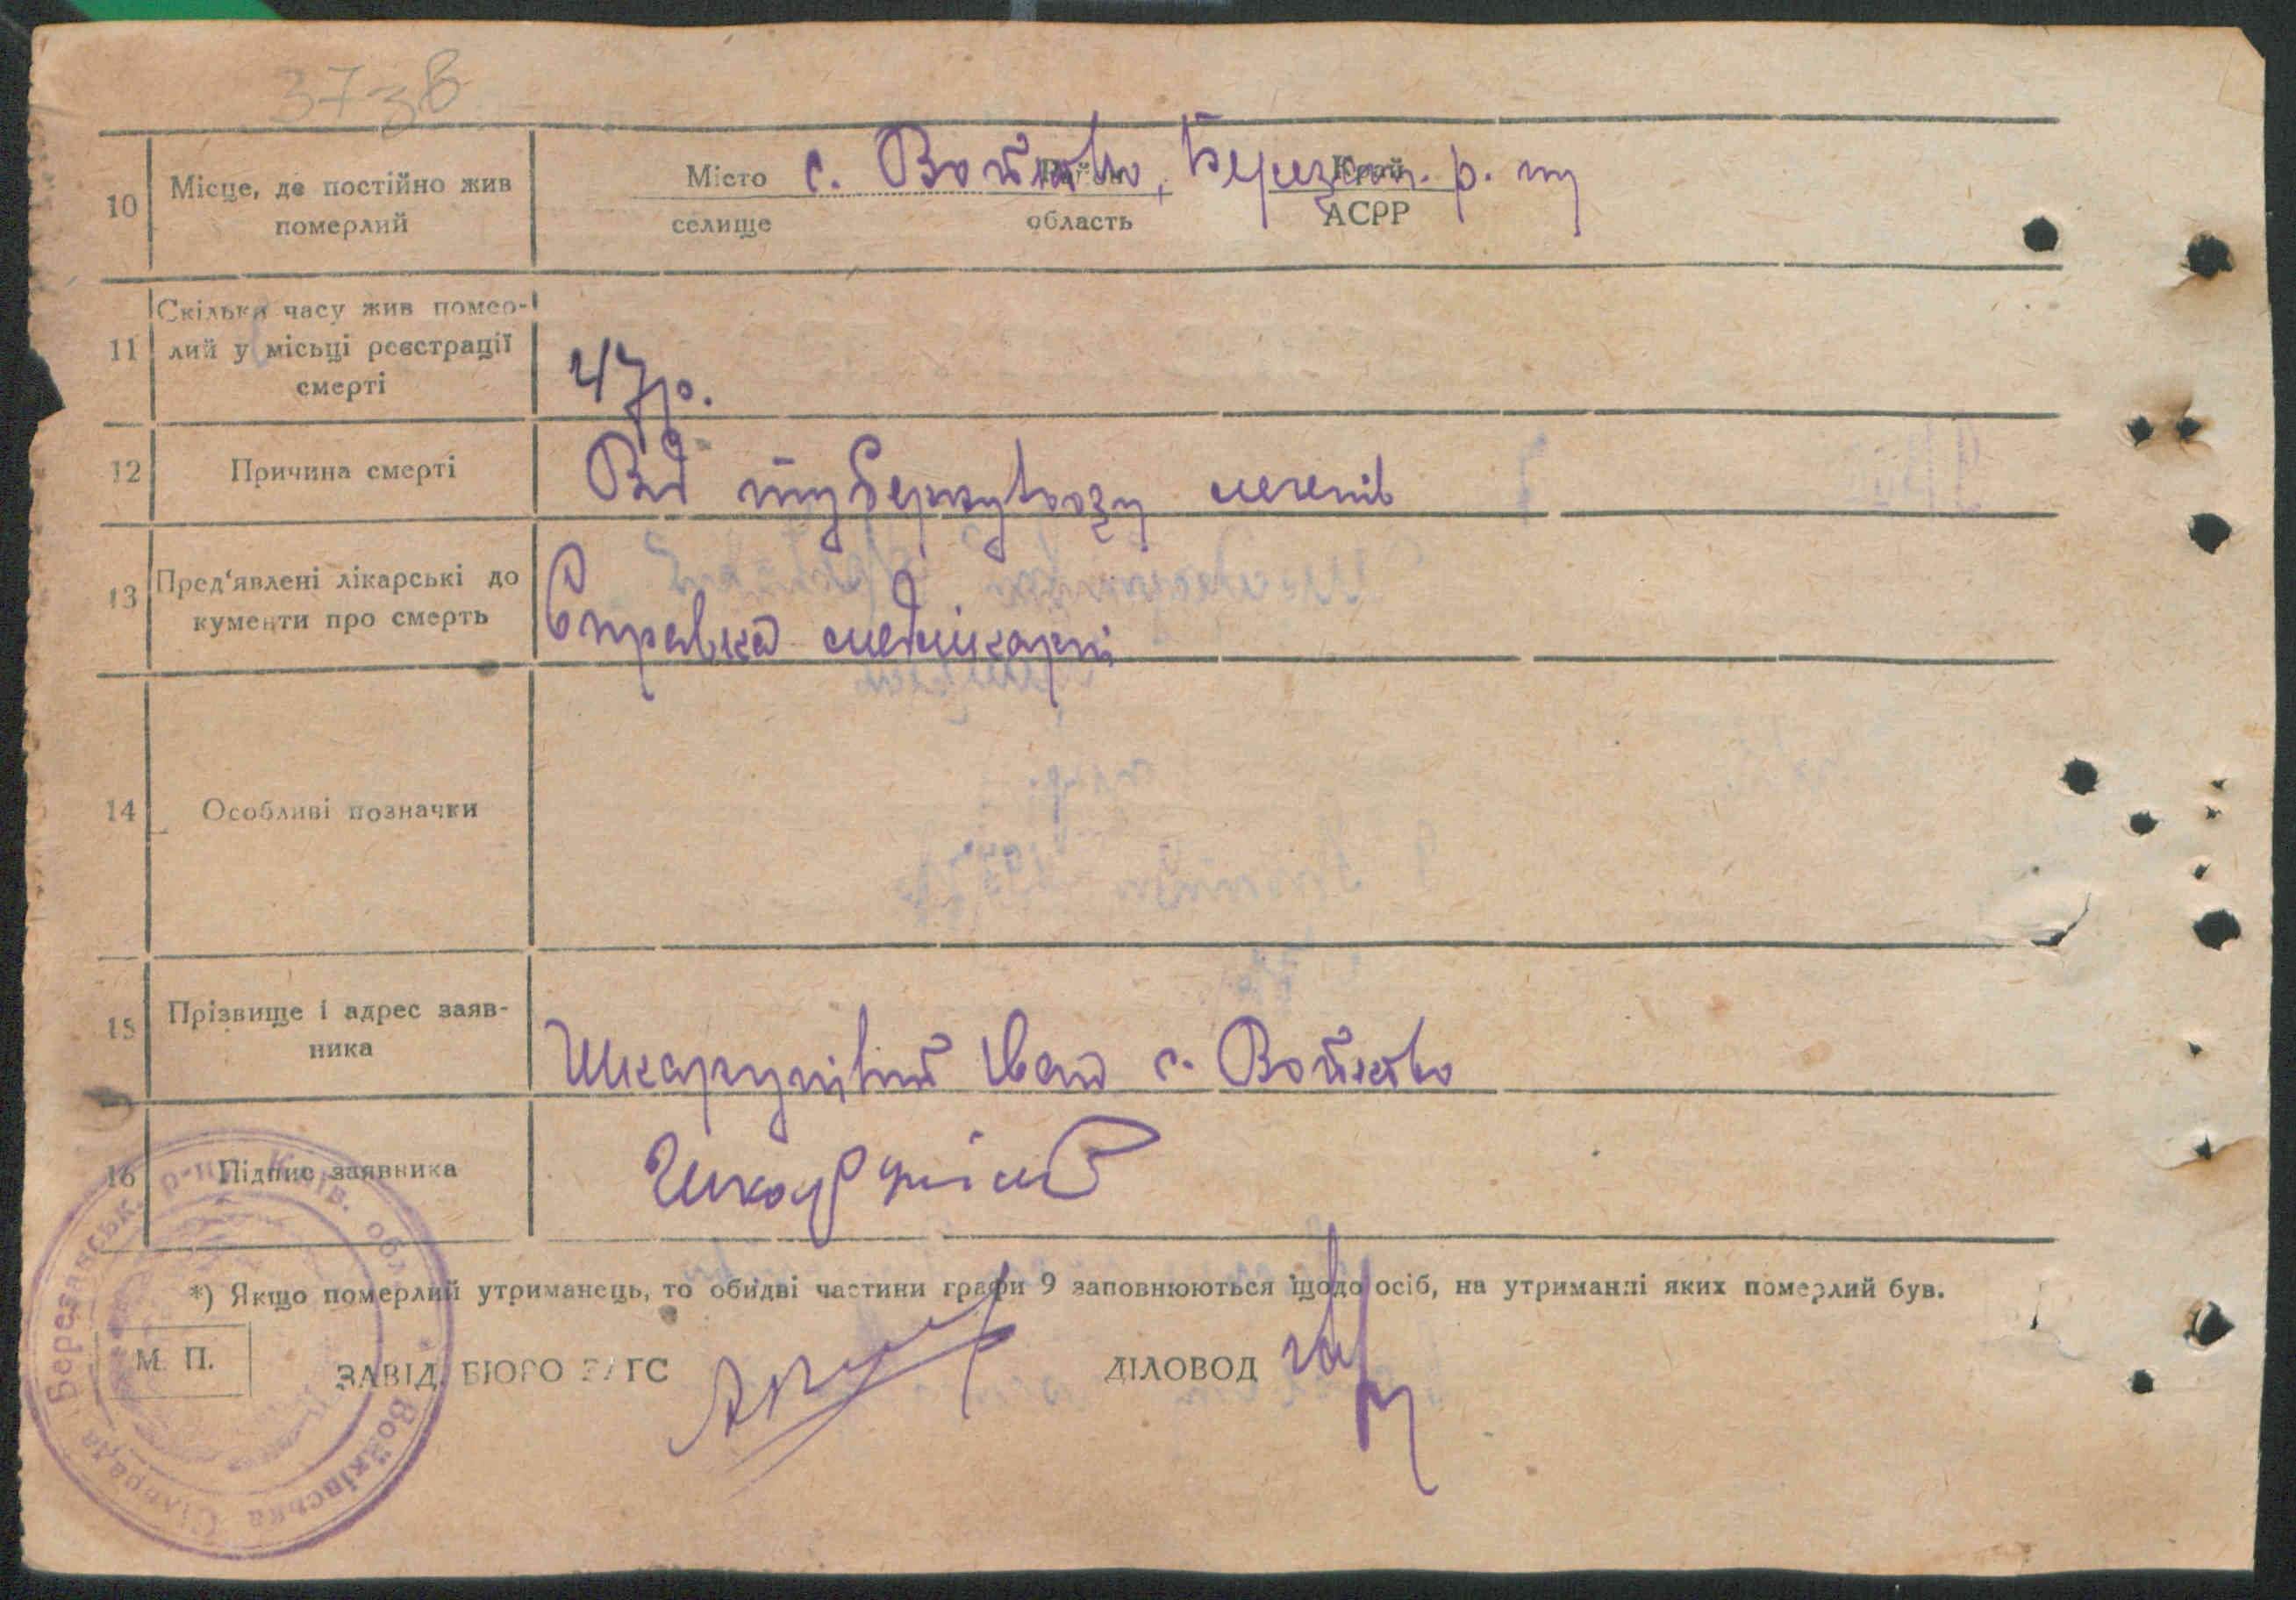 3738
10
Місце, де постійно жив
померлий
Місто с. Войтово, Березан. р. ну
Район Край
селище область АСРР
11
Скільки часу жив помер-
лий у місьці реєстрації
смерті
47 р.
12
Причина смерті
Від туберкульозу легенів
13
Пред'явлені лікарські до
кументи про смерть
Справка медлікарні
14
Особливі позначки
15
Прізвище і адрес заяв-
ника
Іван с. Войтово
16
Підпис заявника
*) Якщо померлий утриманець, то обидві частини графи 9 заповнюються щодо осіб, на утриманні яких померлий був.
М. П.
ЗАВІД. БЮРО ЗАГС
ДІЛОВОД
Березанськ. р-ну Київ. обл.
Сільрада